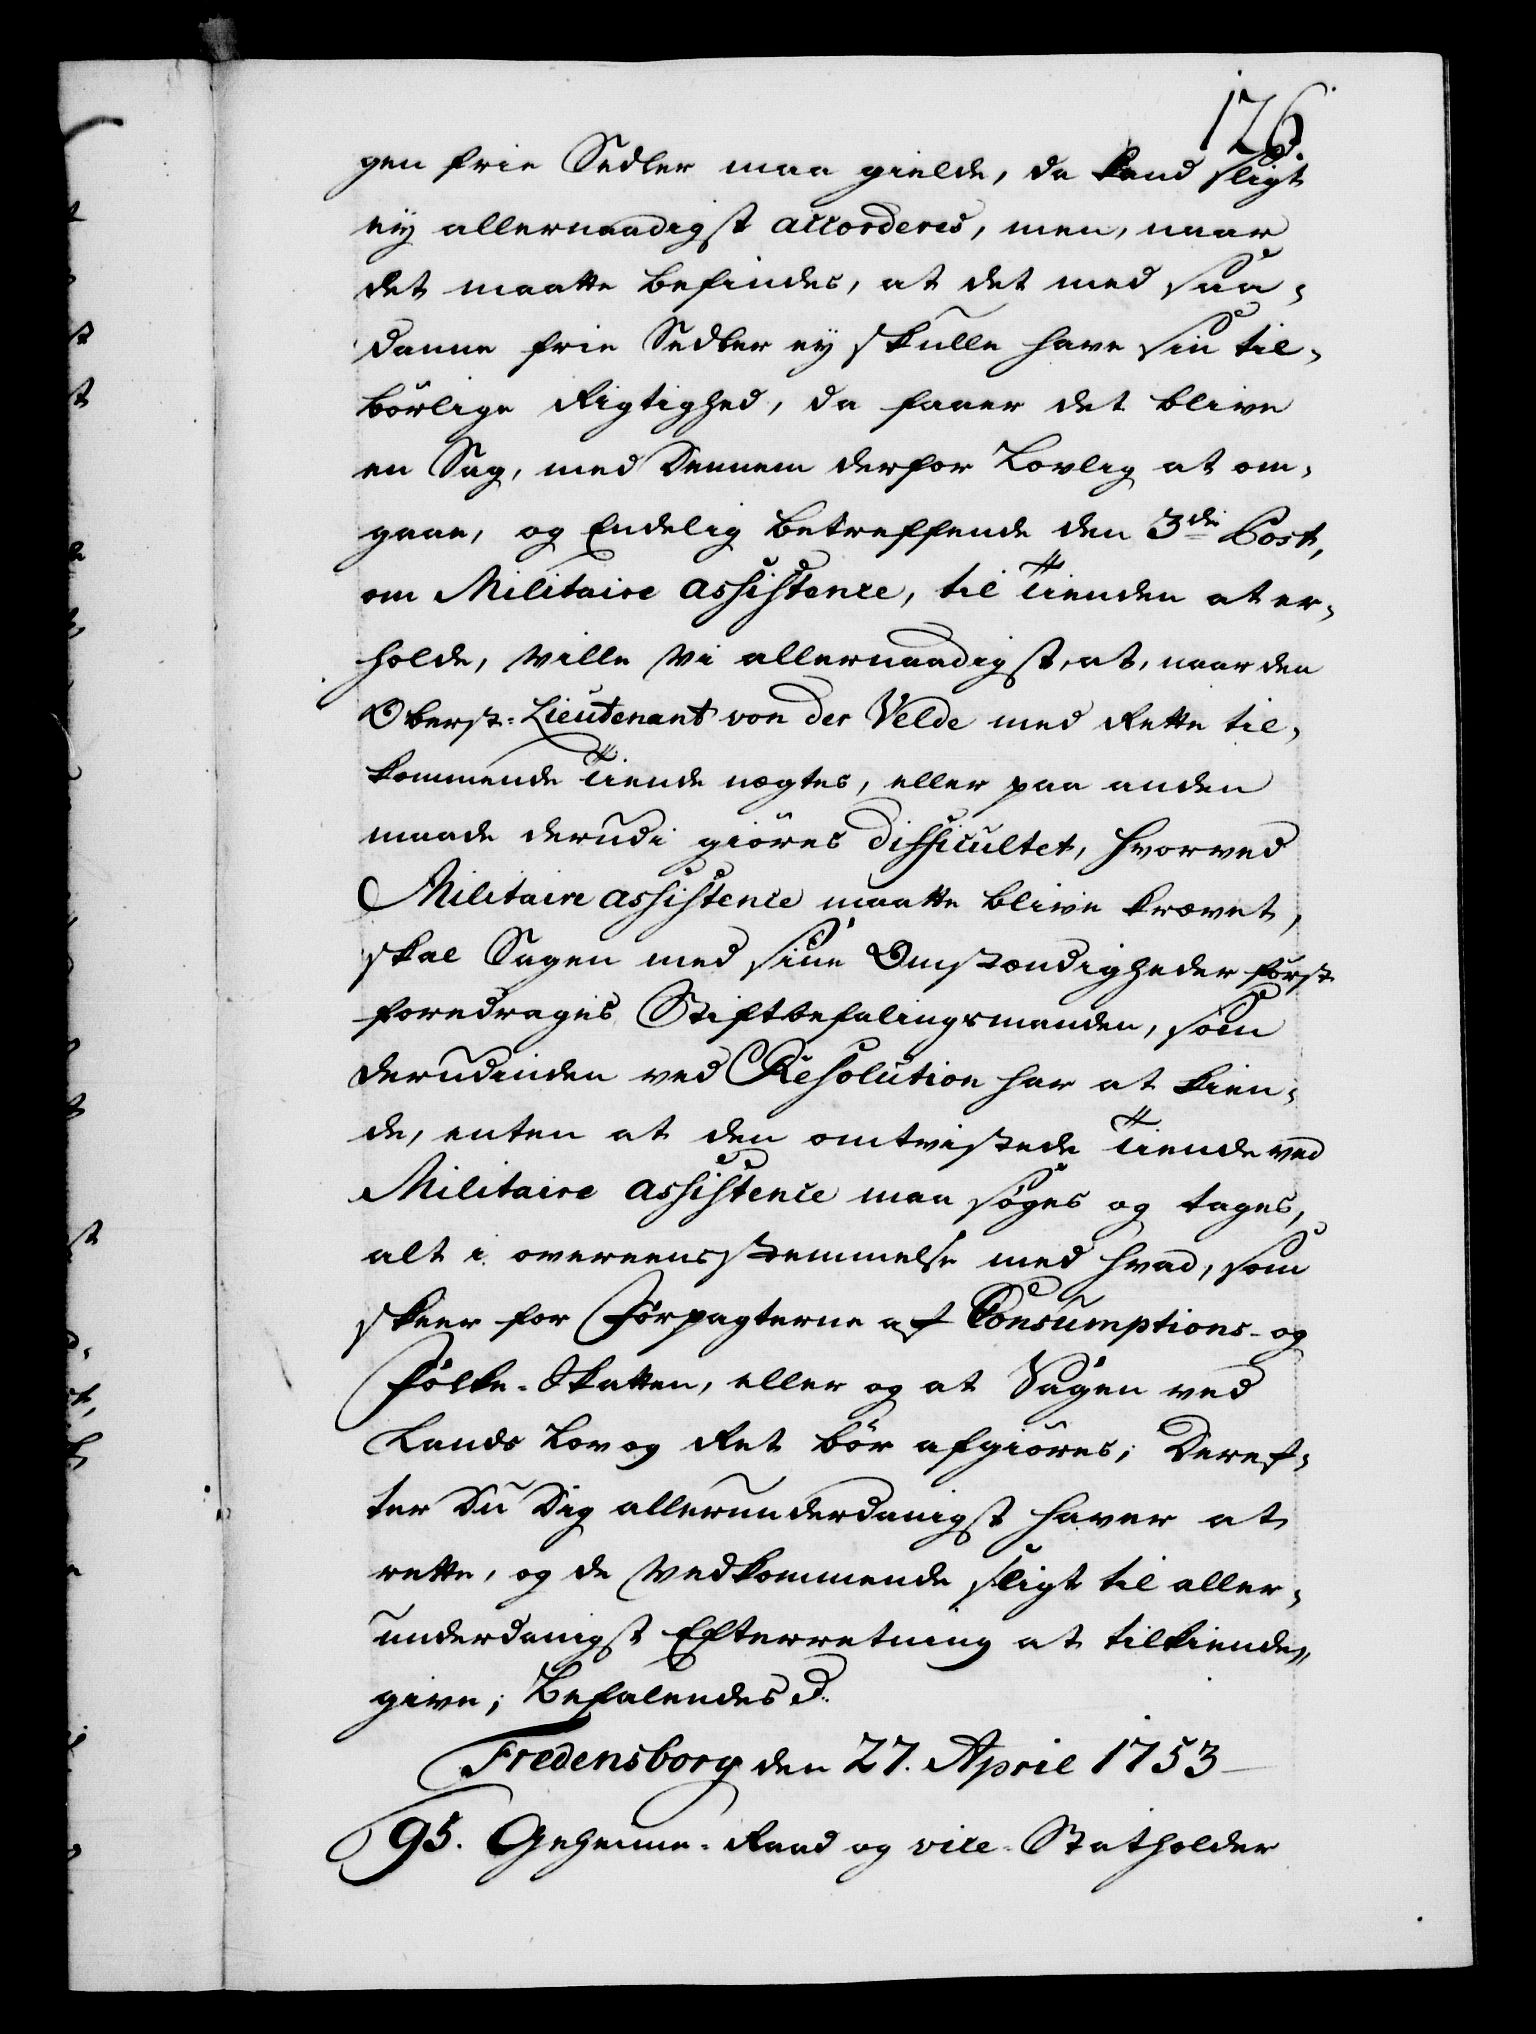 126.
gen frie Sedler maa gielde, da kand sligt
ey allernaadigst accorderes, men, naar
det maatte befindes, at det med saa-
danne frie Sedler ey skulle have sin til-
børlige Rigtighed, da faaer det blive
en Sag, med Dennem derfor Lovlig at om-
gaae, og Endelig betreffende den 3die Post,
om Militaire assistence, til Tienden at er-
holde, Ville Vi allernaadigst, at, naar den
Oberst-Lieutenant von der Velde med Rette til-
kommende Tiende nægtes, eller paa anden
maade derudi giøres difficultet, hvorved
Militaire assistence maatte blive krævet,
skal Sagen med sine Omstændigheder først
foredrages Stiftbefalingsmanden, som
derudinden ved Resolution har at kien-
de, enten at den omtvistede Tiende ved
Militaire assistence maa søges og tages,
alt i overeensstemmelse med hvad, som
skeer for Forpagterne af Consumptions- og
Folke-Skatten, eller og at Sagen ved
Lands Lov og Ret bør afgiøres; Deref-
ter Du Dig allerunderdanigst haver at
rette, og de Vedkommende sligt til aller-
underdanigst Efterretning at tilkiende-
give; Befalendes d.
Fredensborg den 27. April 1753
95. Geheime-Raad og vice-Statholder